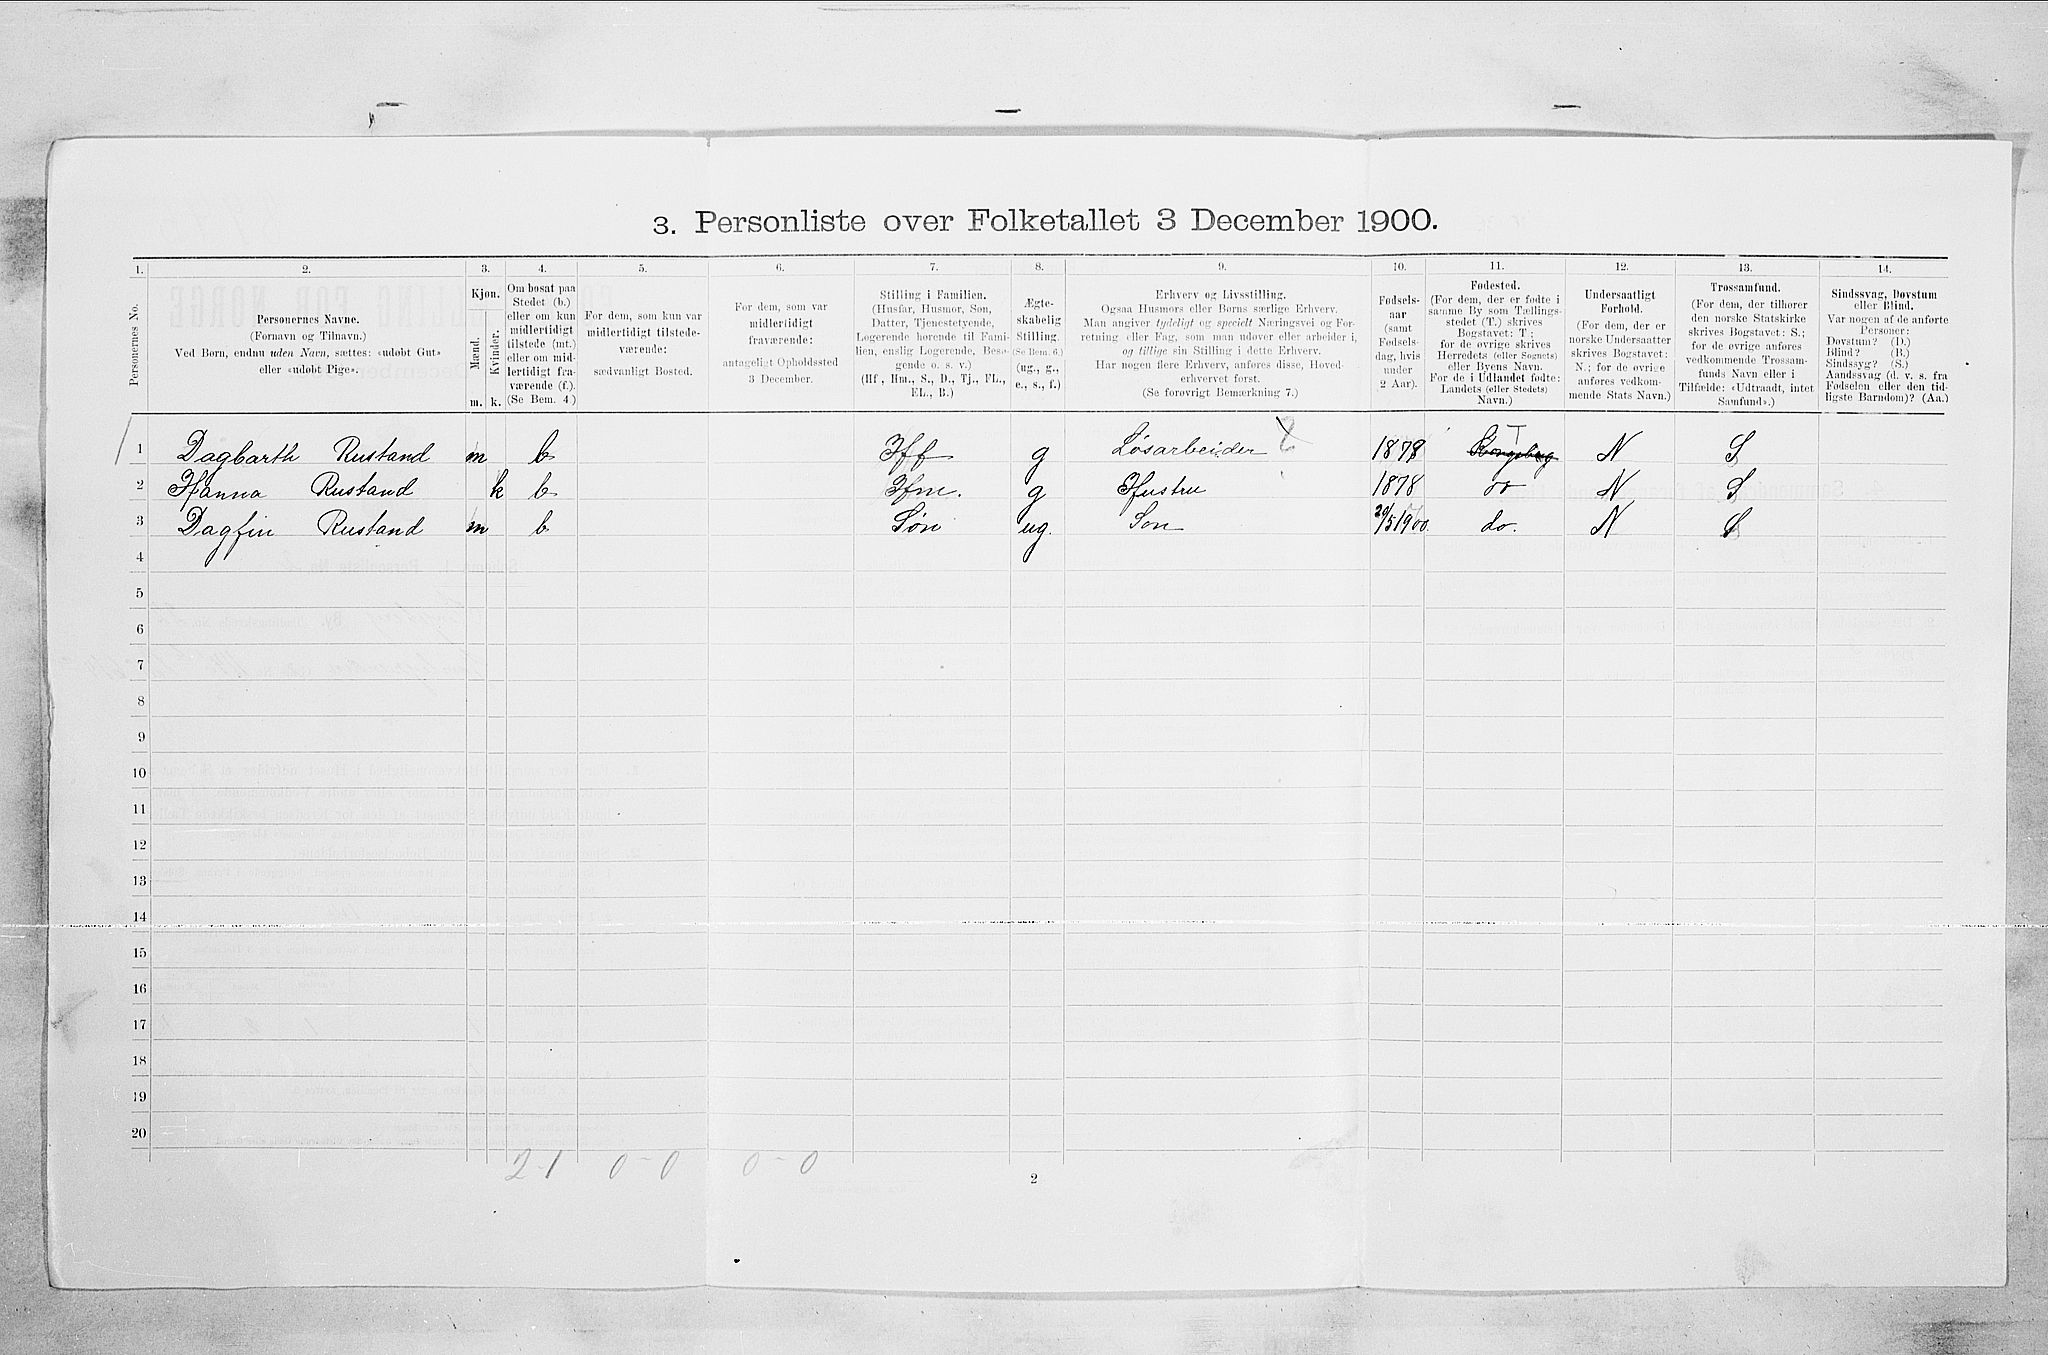 3. Personliste over Folketallet 3 December 1900.
1. 2. 3. 4. 5. 6. 7. 8. 9. 10. 11. 12. 13. 14.
Personernes No.
Personernes Navne.
(Fornavn og Tilnavn.)
Ved Børn, endnu uden Navn, sættes: «udøbt Gut»
eller «udøbt Pige».
Kjøn.
Mænd.
Kvinder.
m. k.
Om bosat paa
Stedet (b.)
eller om kun
midlertidigt
tilstede (mt.)
eller om mid-
lertidigt fra-
værende (f.).
(Se Bem. 4.)
For dem, som kun var
midlertidigt tilstede-
værende:
sædvanligt Bosted.
For dem, som var
midlertidigt
fraværende:
antageligt Opholdssted
3 December.
Stilling i Familien.
(Husfar, Husmor, Søn,
Datter, Tjenestetyende,
Logerende hørende til Fami-
lien, enslig Logerende, Besø-
gende o. s. v.)
(Hf, Hm., S., D., Tj., FL.,
EL., B.)
Ægte-
skabelig
Stilling.
(Se Bem. 6.)
(ug., g.,
e., s., f.)
Erhverv og Livsstilling.
Ogsaa Husmors eller Børns særlige Erhverv.
Man angiver tydeligt og specielt Næringsvei og For-
retning eller Fag, som man udøver eller arbeider i,
og tillige sin Stilling i dette Erhverv.
Har nogen flere Erhverv, anføres disse, Hoved-
erhvervet først.
(Se forøvrigt Bemærkning 7.)
Fødsels-
aar
(samt
Fødsels-
dag, hvis
under
2 Aar).
Fødested.
(For dem, der er fødte i
samme By som Tællings-
stedet (T.) skrives
Bogstavet: T;
for de øvrige skrives
Herredets (eller Sognets)
eller Byens Navn.
For de i Udlandet fødte:
Landets (eller Stedets)
Navn.)
Undersaatligt
Forhold.
(For dem, der er
norske Undersaatter
skrives Bogstavet:
N.; for de øvrige
anføres vedkom-
mende Stats Navn.)
Trossamfund.
(For dem, der tilhører
den norske Statskirke
skrives Bogstavet: S.;
for de øvrige anføres
vedkommende Trossam-
funds Navn eller i
Tilfælde: «Udtraadt, intet
Samfund».)
Sindssvag, Døvstum
eller Blind.
Var nogen af de anførte
Personer:
Døvstum? (D.)
Blind? (B.)
Sindssyg? (S.)
Aandssvag (d. v. s. fra
Fødselen eller den tid-
ligste Barndom)? (Aa.)
1 Dagbarth Rustand m b Hf g Løsarbeider 1878 T Kongsberg N S
2 Hanna Rustand k b Hm. g Hustru 1878 do N S
3 Dagfin Rustand m b Søn ug. Søn 20/5 1900 do. N S
4
5
6
7
8
9
10
11
12
13
14
15
16
17
18
19
20
2-1 0-0 0-0
2